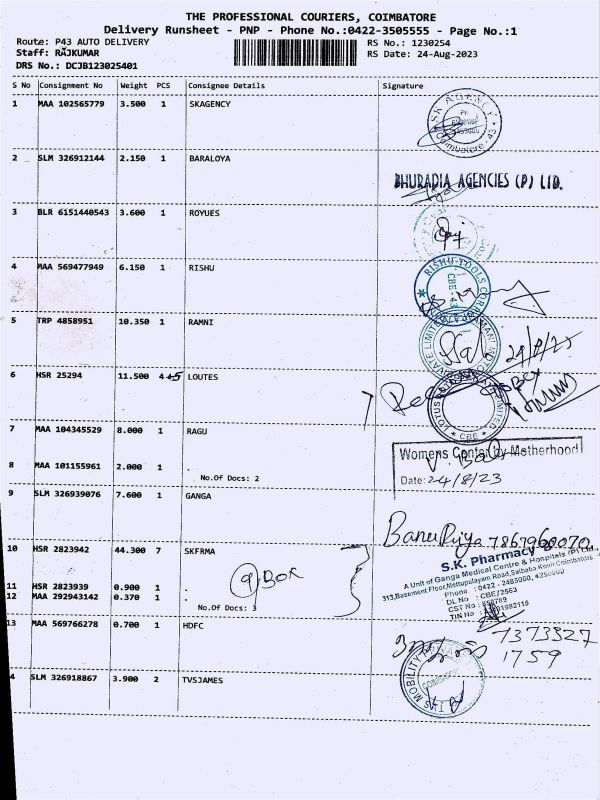 THE PROFESSIONAL COURIERS, COIMBATORE
Delivery Runsheet - PNP - Phone No.:0422-3505555 - Page No.:1
Route: P43 AUTO DELIVERY
RS No.: 1230254
Staff: RAJKUMAR
RS Date: 24-Aug-2023
DRS No.: DCJB123025401
S No Consignment No Weight PCS Consignee Details Signature
1 MAA 102565779 3.500 1 SKAGENCY
SK AGENCY
Coimbatore - 43
2 SLM 326912144 2.150 1 BARALOYA
BHURADIA AGENCIES (P) LTD.
3 BLR 6151440543 3.600 1 ROYUES
4 MAA 569477949 6.150 1 RISHU
RISHU TOOLS
CBE - 43
5 TRP 4858951 10.350 1 RAMNI
24/8/23
6 HSR 25294 11.500 4+5 LOUTES
CBE
7 MAA 104345529 8.000 1 RAGU
Womens Center by Motherhood
8 MAA 101155961 2.000 1 .
No.Of Docs: 2
Date: 24/8/23
9 SLM 326939076 7.600 1 GANGA
Banu Priya 7867960070
10 HSR 2823942 44.300 7 SKFRMA
S.K. Pharmacy
A Unit of Ganga Medical Centre & Hospitals (P) Ltd.
313, Basement Floor, Mettupalayam Road, Saibaba Kovil, Coimbatore
Phone : 0422 - 2485000, 4250000
DL No : CBE/2563
CST No : 858789
TIN No :
9 Box
11 HSR 2823939 0.900 1 .
12 MAA 292943142 0.370 1 .
No.Of Docs: 3
13 MAA 569766278 0.700 1 HDFC
7373327
1759
4 SLM 326918867 3.900 2 TVSJAMES